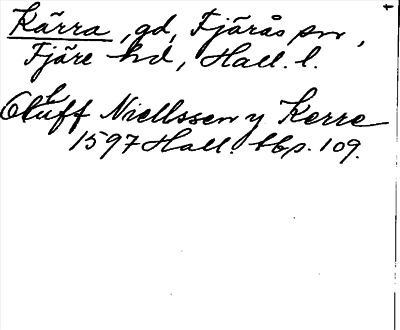 Kärra, gd, Fjärås sn,
Fjäre hd, Hall. l.
Oluff Niellssen y Kerre
1597 Hall. lbp. 109.